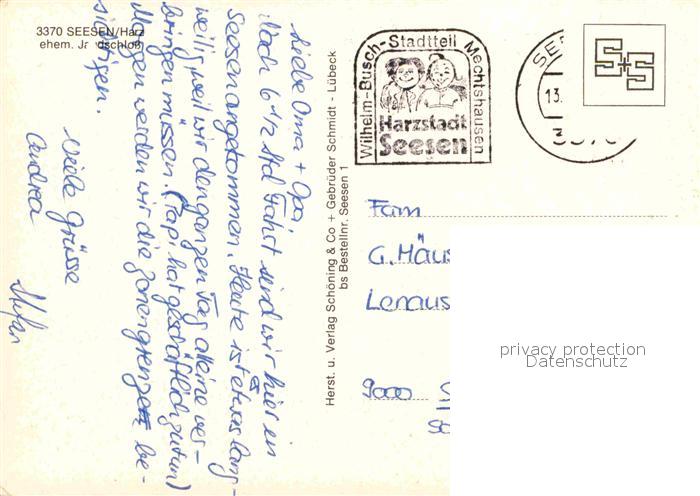 3370 SEESEN/Harz
ehem. Jagdschloß
Liebe Oma + Opa,
Nach 6 1/2 Std Fahrt sind wir hier in
Seesen angekommen. Heute ist etwas lang-
weilig weil wir den ganzen Tag alleine ver-
bringen müssen. (Papi hat geschäftlich zu tun)
Morgen werden wir die Zonengrenze be-
sichtigen.
Viele Grüsse
Andrea
Stefan
Herst. u. Verlag Schöning & Co + Gebrüder Schmidt - Lübeck
bs Bestellnr. Seesen 1
Wilhelm-Busch-Stadtteil Mechtshausen
Harzstadt
Seesen
SEE
13.
3370
S+S
Fam
G. Häus
Lenaus
9000
privacy protection
Datenschutz